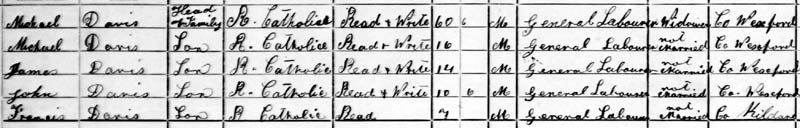 Michael Davis Head of Family R. Catholic Read & Write 60 6 M General Labourer Widower Co Wexford
Michael Davis Son R. Catholic Read & Write 16 M General Labourer not Married Co Wexford
James Davis Son R. Catholic Read & Write 14 M General Labourer not Married Co Wexford
John Davis Son R. Catholic Read & Write 10 6 M General Labourer not Married Co. Wexford
Francis Davis Son R Catholic Read 7 M General Labour not Married Co Kildare